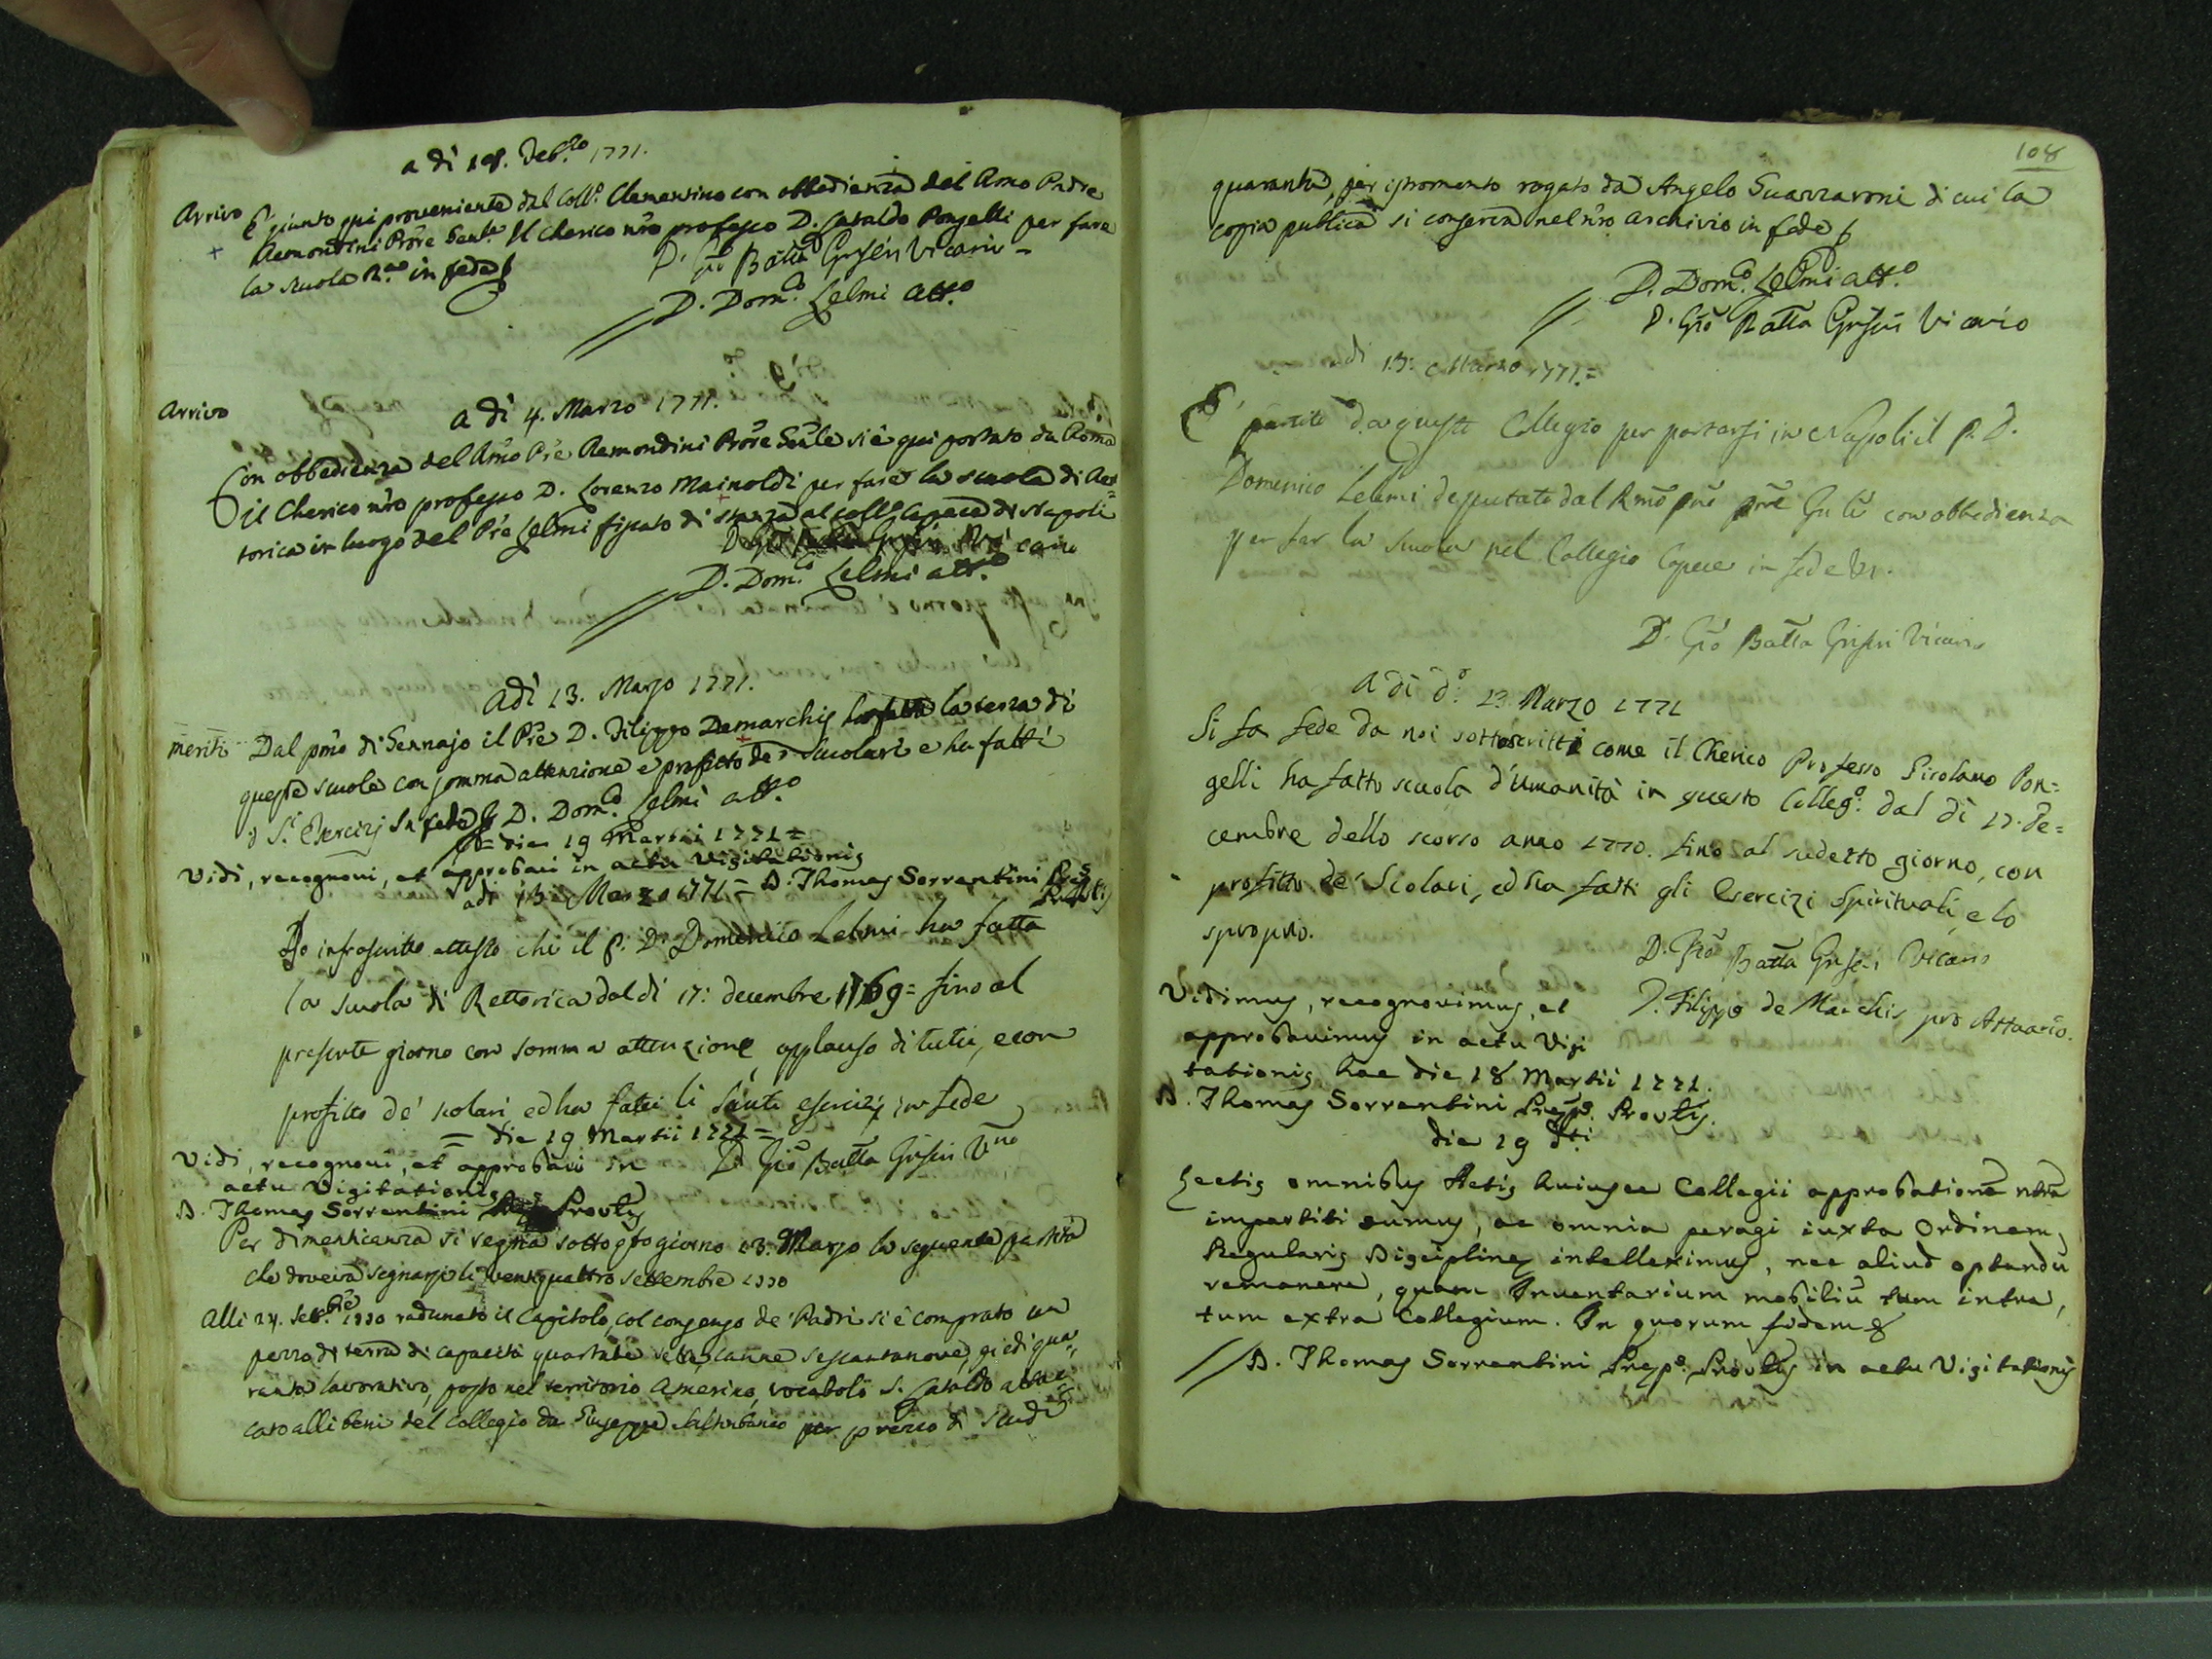 a dì 18. Feb.ro 1771.
Arrivo È giunto qui proveniente dal Coll.o Clementino con obbedienza del Rmo Padre
Remondini Prõre Gen.le Il Cherico nro professo D. Cataldo Pongelli per fare
la scuola
in fede
D. Gio Batta Griseri Vicario
D. Dom.co Lelmi Att.o
Arrivo
a dì 4. Marzo 1771.
Con obbedienza del Rmo Pre Remondini Prõre Gñle si è qui portato da Roma
il Cherico nro professo D. Lorenzo Mainoldi per fare la scuola di Ret=
torica in luogo del Pre Lelmi fissato di stanza al Coll.o Capece di Napoli
D. Gio Batta Griseri Vicario
D. Dom.co Lelmi att.o
Adì 13. Marzo 1771.
meriti Dal pmo di Gennajo il Pre D. Filippo Demarchis ha fatto la terza di
queste scuole con somma attenzione e profitto de' scuolari e ha fatti
i S.ti Esercizj In fede D. Dom.co Lelmi att.o
= die 19 Martii 1771 =
Vidi, recognovi, et approbavi in actu Visitationis
adi 13 Marzo 1771 = D. Thomas Sorrentini
Io infrascritto attesto che il P. D. Domenico Lelmi ha fatta
la scuola di Rettorica dal dì 17: decembre 1769= fino al
presente giorno con somma attenzione, applauso di tutti, e con
profitto de' scolari ed ha fatti li Santi esercizj in fede
= die 19 Martii 1771 =
Vidi, recognovi, et approbavi in
D. Gio Batta Griseri V.rio
actu Visitationis
D. Thomas Sorrentini Provlis
Per dimenticanza si segna sotto qto giorno 13. Marzo la seguente partita
che doveva segnarsi li ventiquattro settembre 1770
Alli 24. Setb.re 1770 radunato il Capitolo, col consenso de' Padri si è comprato un
pezzo di terra di capacità quartabò sette, canne sessantanove, piedi qua=
ranta lavorativo, posto nel territorio Amerino, vocabolo S. Cataldo attac=
cato alli beni del Collegio da Giuseppe Saltinbanco per prezzo di Scudi
108
quaranta, per istromento rogato da Angelo Suazzaroni di cui la
copia publica si conserva nel nro archivio in fede
D. Dom.co Lelmi att.o
D. Gio Batta Griseri Vicario
adi 13: Marzo 1771.=
È partito da questo Collegio per portarsi in Napoli il P. D.
Domenico Lelmi deputato dal Rmo pre pre Gñle con obbedienza
per far la scuola nel Collegio Capece in fede
D. Gio Batta Griseri Vicario
A dì d.o 13 Marzo 1771
Si fa fede da noi sottoscritti come il Cherico Professo Girolamo Pon=
gelli ha fatto scuola d'Umanità in questo Colleg.o dal dì 17. de=
cembre dello scorso anno 1770. fino al sudetto giorno, con
profitto de' Scolari, ed ha fatti gli Esercizi Spirituali, e lo
sproprio.
D. Gio Batta Griseri Vicario
D. Filippo de Marchis pro Attuario.
Vidimus, recognovimus, et
approbavimus in actu Visi
tationis hac die 18 Martii 1771.
D. Thomas Sorrentini Prep.s Provlis.
die 19 dti
Lectis omnibus Actis huiusce Collegii approbationẽ nrã
impertiti sumus, ac omnia peragi iuxta Ordinem,
Regularis Discipline intelleximus, nec aliud optandũ
remanere, quam Inventarium mobiliũ tum intra,
tum extra Collegium. In quorum fidem &
D. Thomas Sorrentini Prep.s Provlis in actu Visitationis